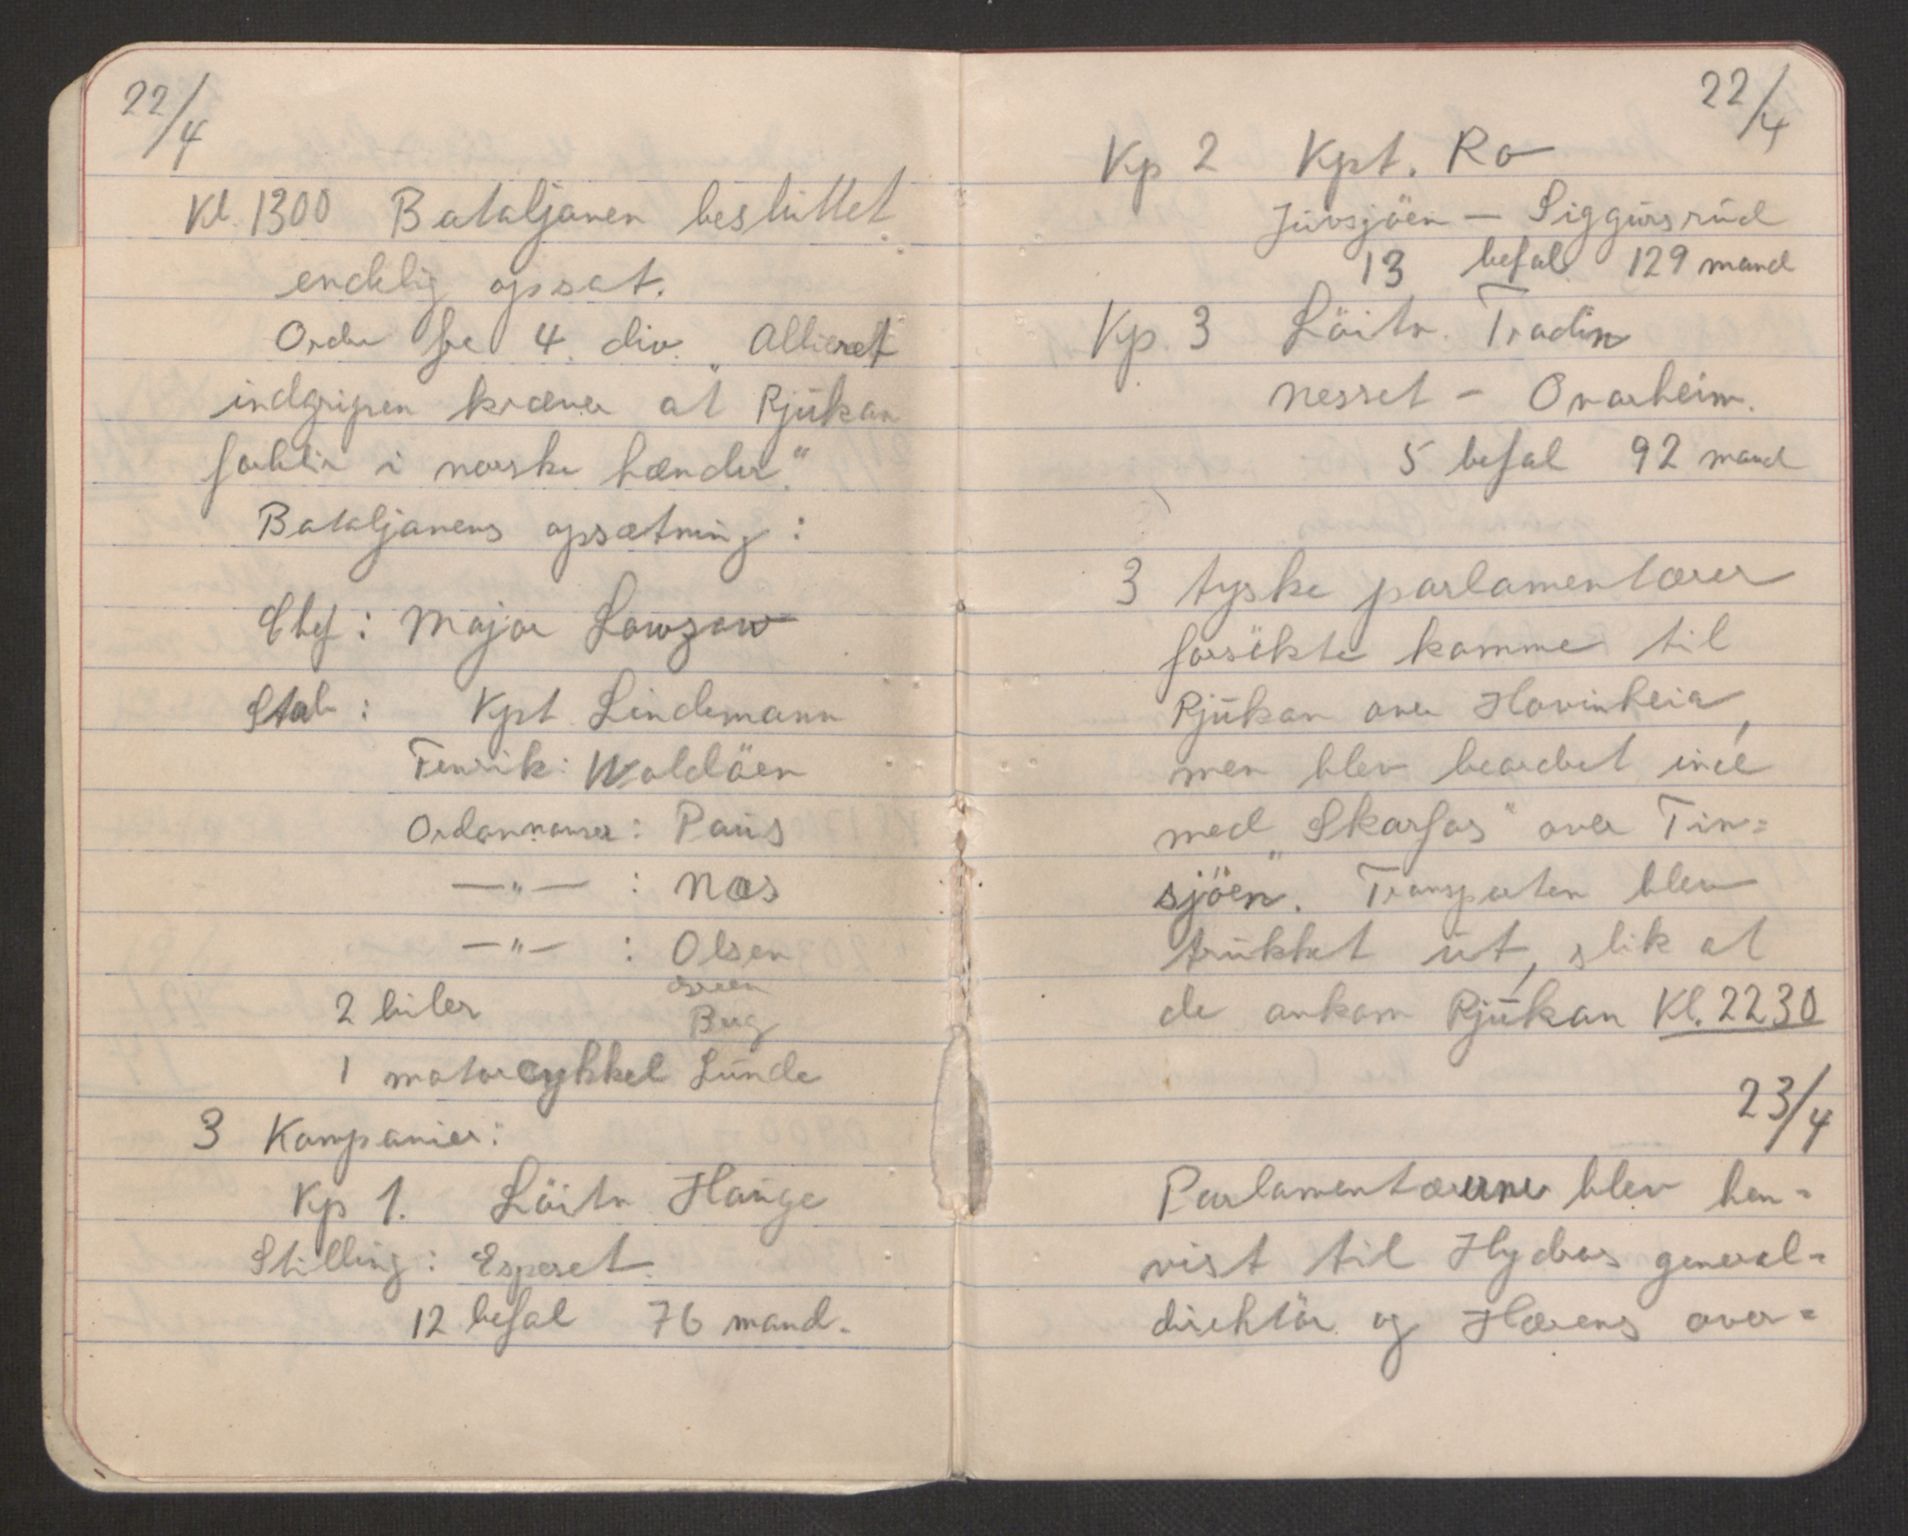 22/4
Kl. 1300 Bataljonen besluttet
endelig opsat.
Ordre fra 4. div. "Alliert
indgripen kræver at Rjukan
forblir i norske hænder."
Bataljonens opsætning:
Chef: Major Lowzow
Stab: Kpt Lindemann
Fenrik: Waldöen
Ordonnanser: Paus
—"— : Næs
—"— : Olsen
2 biler
Berg
1 motorcykkel Lunde
3 Kompanier:
Kp 1. Löitn Hauge
Stilling: Espeset.
12 befal 76 mand.
22/4
Kp 2 Kpt. Ro
Juvsjöen — Siggursrud
13 befal 129 mand
Kp. 3 Löitn. Tradin
Nesset - Ovarheim.
5 befal 92 mand
3 tyske parlamentærer
forsökte komme til
Rjukan over Hovinheia,
men blev beordret inn
med "Skarfos" over Tin=
sjöen. Transporten blev
trukket ut, slik at
de ankom Rjukan Kl. 2230
23/4
Parlamentærerne blev hen=
vist til Hydros general=
direktör og Hærens over=